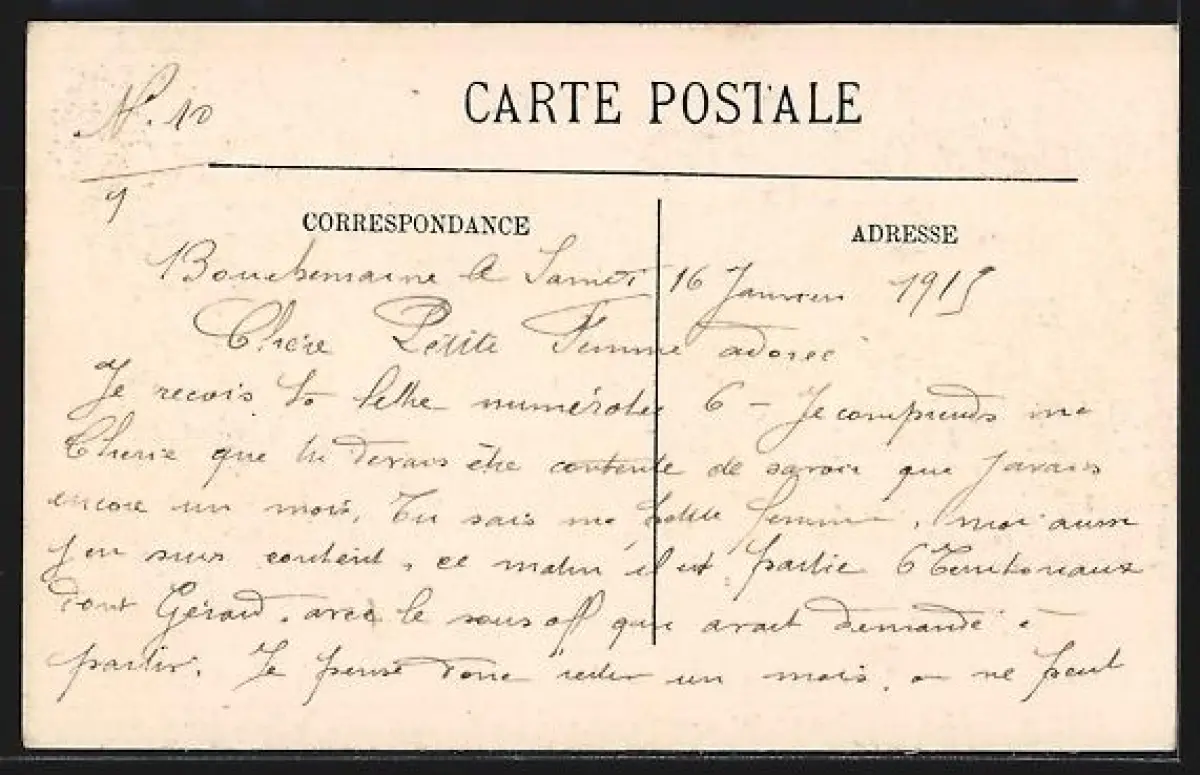 N° 10
CARTE POSTALE
1
CORRESPONDANCE
ADRESSE
Bouchemaine le Samedi 16 Janvier 1915
Chère Petite Femme adorée
Je recois ta lettre numérotée 6 - Je comprends ma
Cherie que tu devais être contente de savoir que j'avais
encore un mois, Tu sais ma petite femme, moi aussi
j'en suis content, ce matin il est partie 6 Territoriaux
dont Gérard, avec le sous off qui avait demandé à
partir. Je pense donc rester un mois, on ne peut